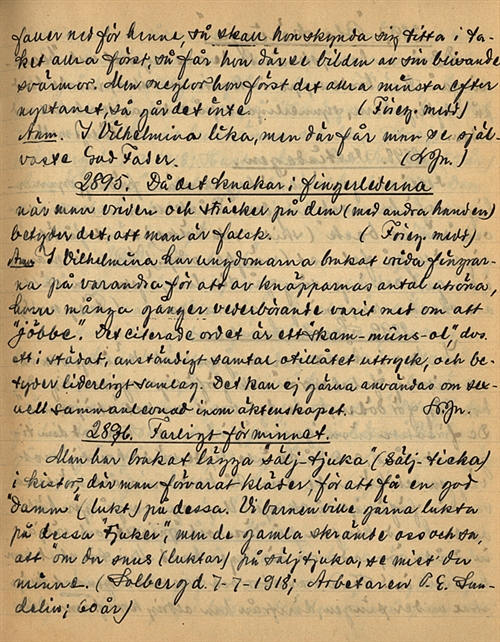 faller ned för henne, så skall hon skynda sig titta i ta-
ket allra först, så får hon där se bilden av sin blivande
svärmor. Men sneglar hon först det allra minsta efter
nystanet, så går det inte. (Föreg. medd)
Anm. I Vilhelmina lika, men där får man se själ-
vaste Gud Fader. (N Jn.)
2895. Då det knakar i fingerlederna
när man vrider och sträcker på dem (med andra handen)
betyder det, att man är falsk. (Föreg. medd)
Anm I Vilhelmina har ungdomarna brukat vrida fingrar-
na på varandra för att av knäpparnas antal utröna,
huru många gånger vederbörande varit med om att
"jöbbe". Det citerade ordet är ett "skam-müns-ol", dvs.
ett i städat, anständigt samtal otillåtet uttryck, och be-
tyder liderligt samlag. Det kan ej gärna användas om sex-
uell sammanlevnad inom äktenskapet. N. Jn.
2896. Farligt för minnet.
Man har brukat lägga "sälj-tjuka" (Sälj-ticka)
i kistor, där man förvarat kläder, för att få en god
"damm" (lukt) på dessa. Vi barnen ville gärna lukta
på dessa "tjuker", men de gamla skrämde oss och sa,
att "om du snus (luktar) på säljtjuka, se mist du
minne. (Solberg d. 7-7-1918; Arbetaren P. E. Sun-
delin; 60 år)